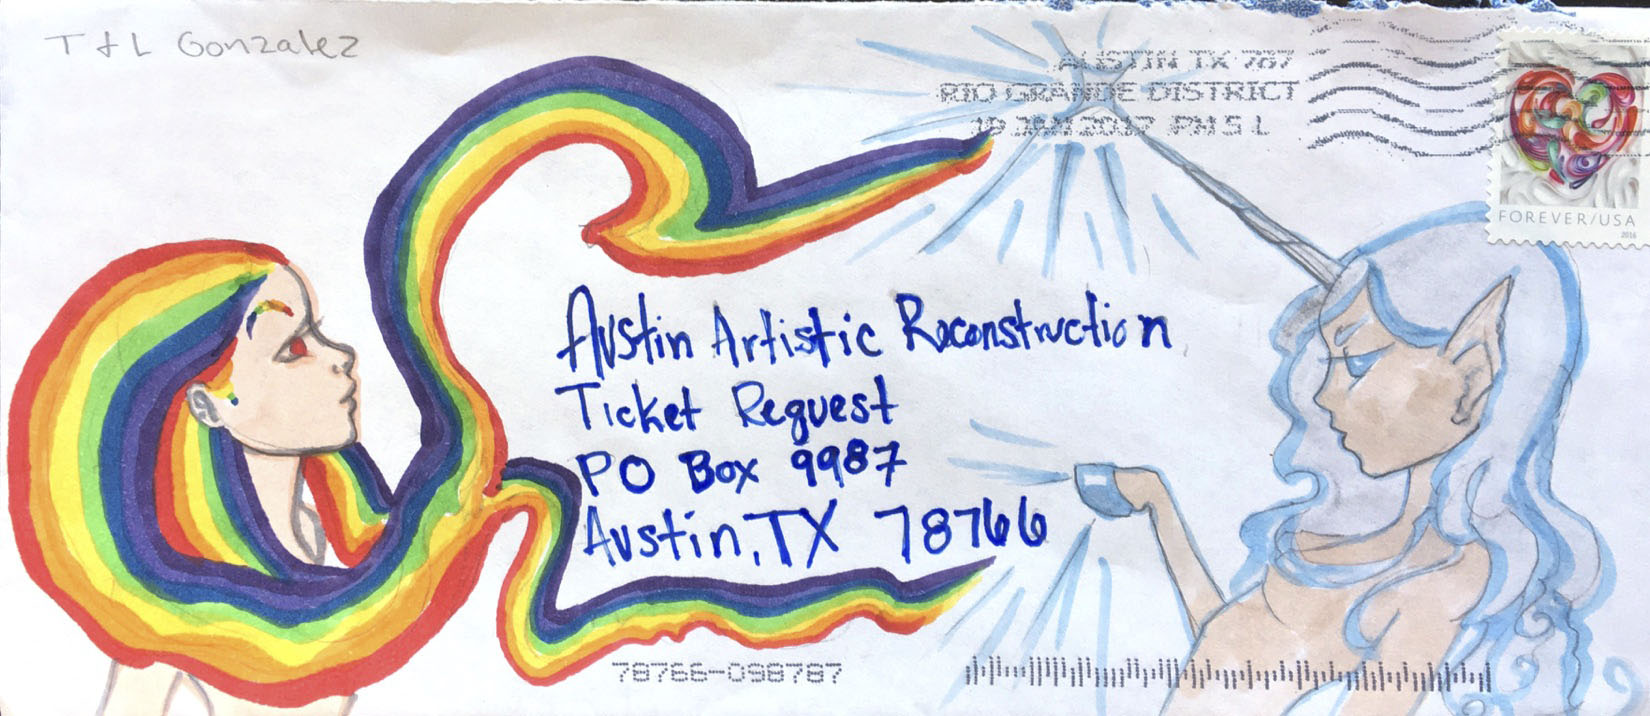 T & L Gonzalez
AUSTIN TX 787
RIO GRANDE DISTRICT
19 JAN 2017 PM 5 L
FOREVER/USA
2016
Austin Artistic Reconstruction
Ticket Request
PO Box 9987
Austin, TX 78766
78766-098787